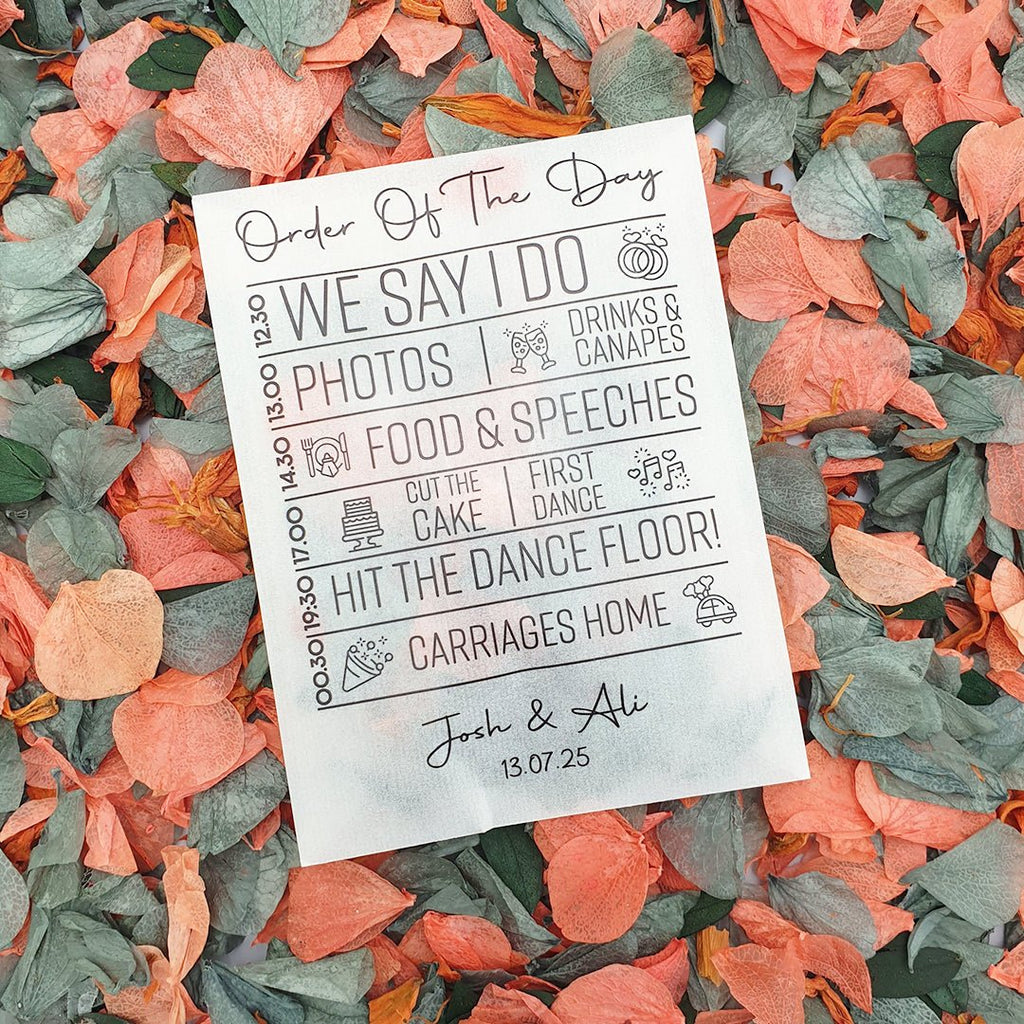 Order Of The Day
12.30 WE SAY I DO
13.00 PHOTOS | DRINKS & CANAPES
14.30 FOOD & SPEECHES
17.00 CUT THE CAKE | FIRST DANCE
19:30 HIT THE DANCE FLOOR!
00.30 CARRIAGES HOME
Josh & Ali
13.07.25